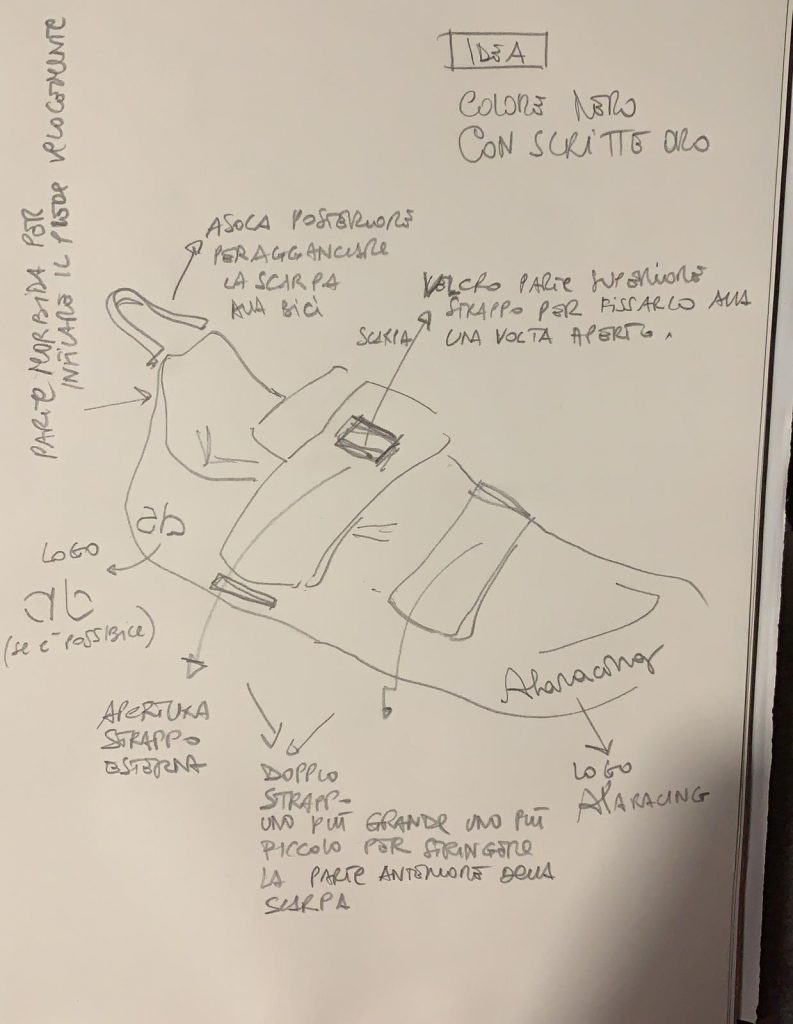 IDEA
COLORE NERO
CON SCRITTE ORO
PARTE MORBIDA PER
INFILARE IL PIEDE VELOCEMENTE
ASOLA POSTERIORE
PER AGGANCIARE
LA SCARPA
ALLA BICI
VELCRO PARTE SUPERIORE
STRAPPO PER FISSARLO ALLA
SCARPA UNA VOLTA APERTO.
ab
LOGO
ab
(SE È POSSIBILE)
Alaracing
APERTURA
STRAPPO
ESTERNA
DOPPIO
STRAPP-
UNO PIÙ GRANDE UNO PIÙ
PICCOLO PER STRINGERE
LA PARTE ANTERIORE DELLA
SCARPA
LOGO
ALARACING